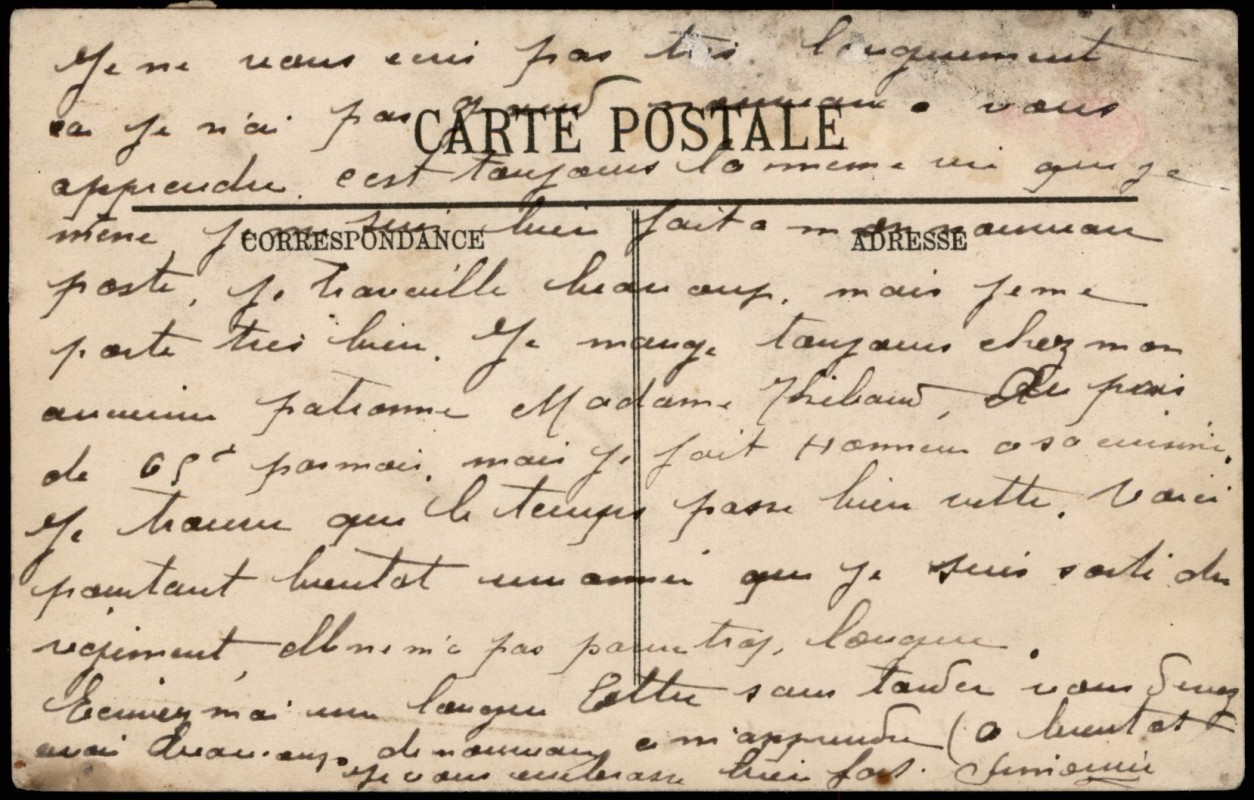 Je ne vous ecris pas très longuement
car je n'ai pas grand nouveau a vous
CARTE POSTALE
apprendre. c'est toujours la meme vie que je
mène je me suis bien fait a mon nouveau
CORRESPONDANCE
ADRESSE
poste, je travaille beaucoup, mais je me
porte très bien. Je mange toujours chez mon
ancienne patronne Madame Thibaud, Je pais
de 65f par mois, mais je fait Honneur a sa cuisine.
Je trouve que le temps passe bien vitte. Voici
pourtant bientot une année que je suis sorti du
régiment, elle ne m'a pas parue trop longue.
Ecrivez moi une longue lettre sans tarder vous devez
avoir beaucoup de nouveau a m'apprendre (a bientot
Je vous embrasse bien fort.